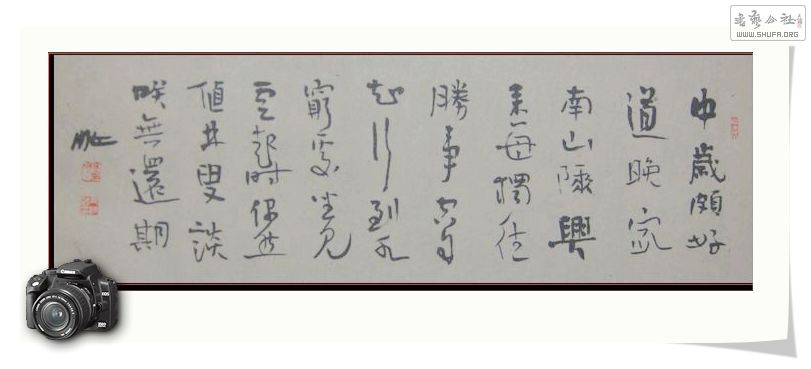 書藝公社
WWW.SHUFA.ORG
中歲頗好
道晚家
南山陲興
来每獨往
勝事空自
知行到水
窮處坐見
雲起時偶然
值林叟談
咲無還期
Canon
EOS